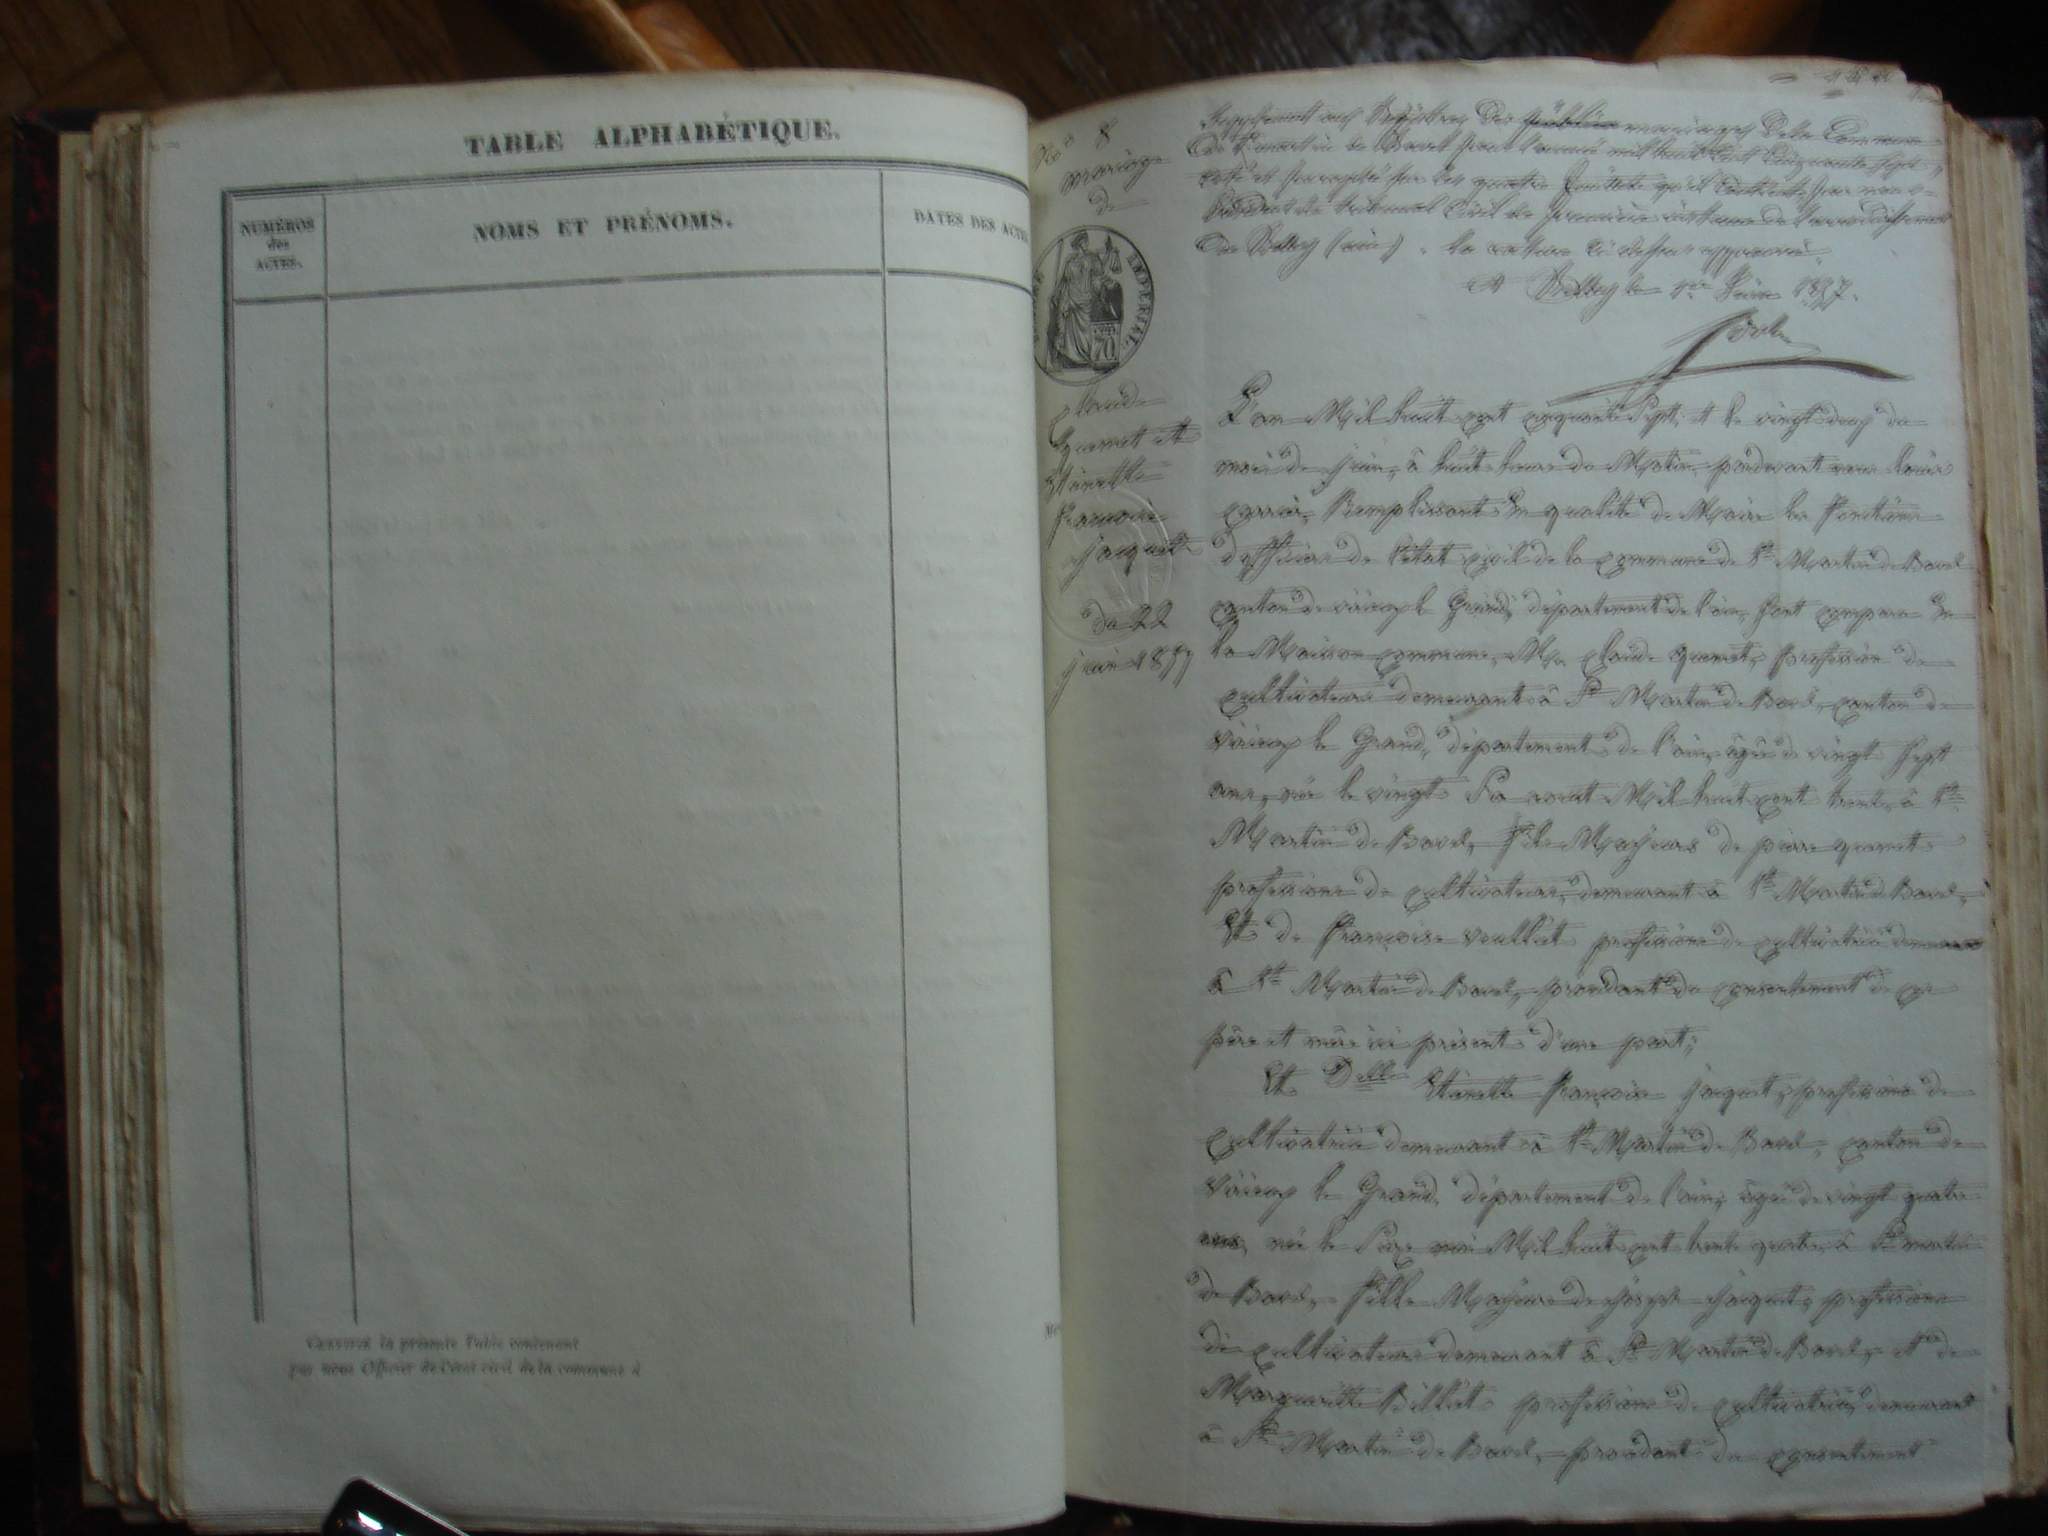 TABLE ALPHABÉTIQUE.
NUMÉROS
des
ACTES.
NOMS ET PRÉNOMS.
DATES DES ACTES
CERTIFIÉ la présente Table contenant
par nous Officier de l'état civil de la commune d
No 8
mariage
de
IMPERIAL.
70
Claude
quemet et
Etiennette
françoise
jacquet
du 22
juin 1857
Supplément aux Registres des publica mariages de la Commune
de St martin de Bavel pour l'année mil huit cent cinquante sept,
coté et paraphé sur les quatre feuillets qu'il contient par nous
Président du tribunal Civil de première instance de l'arrondissement
de Belley (ain)
A Belley le 1er Juin 1857.
L'an Mil huit cent cinquante Sept, et le vingt deux du
mois de juin, à huit heures du Matin, pardevant nous louis
Remplissant En qualité de Maire les Fonctions
d'officier de l'état civil de la commune de St Martin de Bavel
canton de virieux le Grand, département de l'ain, Sont comparu En
la Maison commune, Mr. claude quemet, profession de
cultivateur demeurant à St Martin de Bavel, canton de
Virieux le Grand, département de l'ain, âgé de vingt Sept
ans, née le vingt Six aout Mil huit cent trente, à St
Martin de Bavel, Fils Majeurs de pierre quemet
professions de cultivateur, demeurant à St Martin de Bavel,
Et de Françoise vuillet professions de cultivatrice demeurant
à St Martin de Bavel, procédant du consentement de ces
père et mère ici présents d'une part;
Et Delle Etiennette françoise jacquet, professions de
cultivatrice demeurant à St Martin de Bavel, canton de
Virieux le Grand, département de l'ain, âgée de vingt quatre
ans, née le Seize mai Mil huit cent trente quatre, à St martin
de Bavel, Fille Majeure de joseph jacquet, professions
de cultivateur demeurant à St Martin de Bavel, et de
Marguerite Billiet professions de cultivatrice, demeurant
à St Martin de Bavel, procédant du consentement